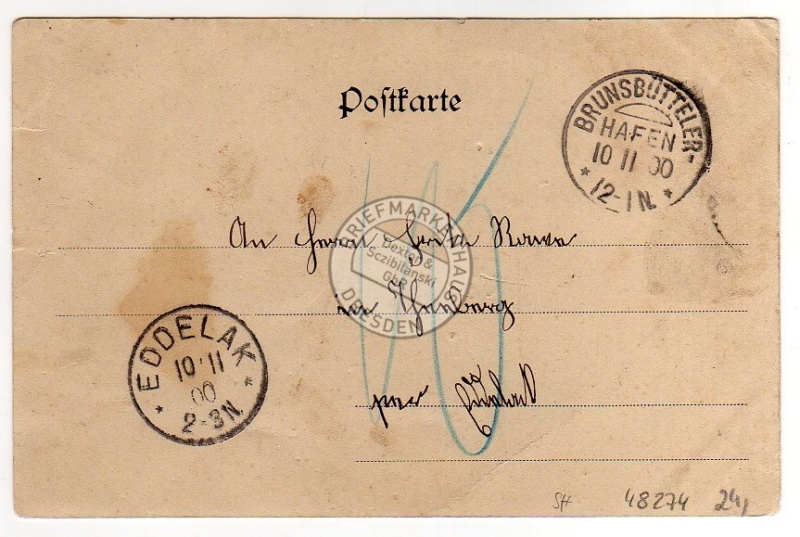 Postkarte
BRUNSBÜTTELER-
HAFEN
10 11 00
* 12-1N. *
An Herrn Rawe
in
per
EDDELAK
10 11
00
* 2-3N. *
BRIEFMARKENHAUS
Dexler &
Sczibilanski
GbR
DRESDEN
SH 48274 24,